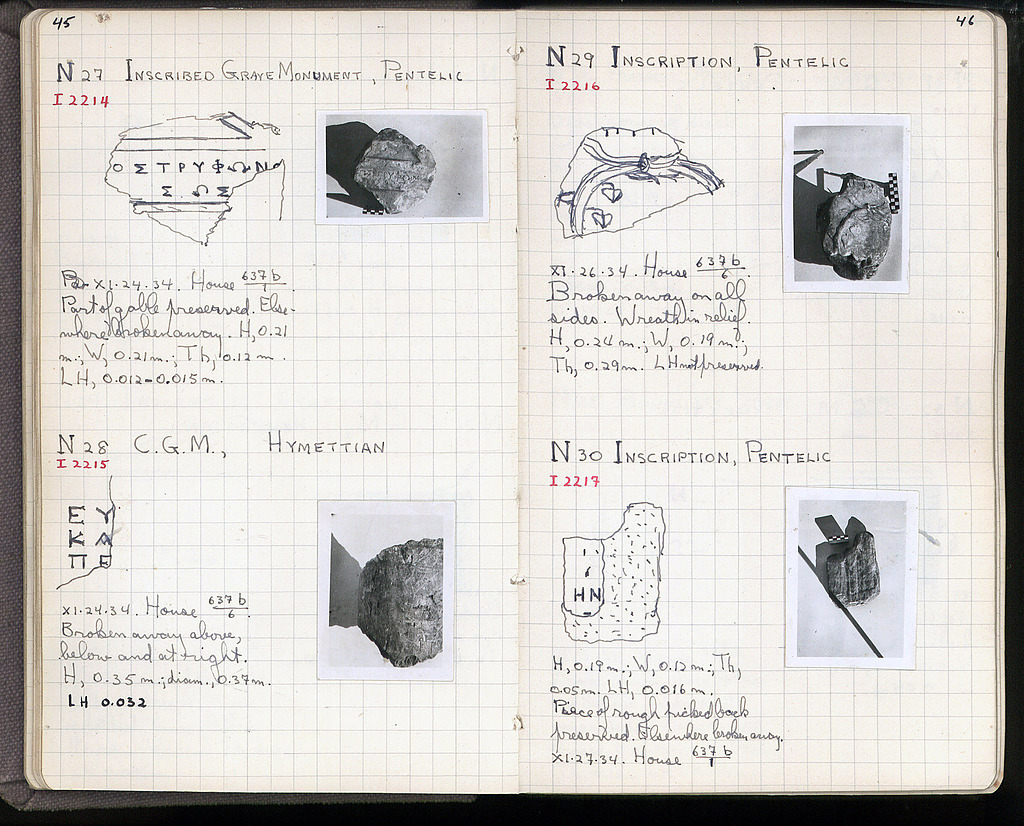 45
N 27 INSCRIBED GRAVE MONUMENT, PENTELIC
I 2214
Ο Σ Τ Ρ Υ Φ Ω Ν Ο
Σ Ω Σ
XI·24·34. House 637 b/1
Part of gable preserved. Else-
where broken away. H, 0.21
m.; W, 0.21 m.; Th, 0.12 m.
LH, 0.012-0.015 m.
N 28 C.G.M., HYMETTIAN
I 2215
Ε Υ
Κ Λ
Π Ε
XI·24·34. House 637 b/6.
Broken away above,
below and at right.
H, 0.35 m.; diam., 0.37 m.
LH 0.032
46
N 29 INSCRIPTION, PENTELIC
I 2216
XI·26·34. House 637 b/6.
Broken away on all
sides. Wreath in relief.
H, 0.24 m.; W, 0.19 m.;
Th, 0.29 m. LH not preserved.
N 30 INSCRIPTION, PENTELIC
I 2217
Η Ν
H, 0.19 m.; W, 0.12 m.; Th,
0.05 m. LH, 0.016 m.
Piece of rough picked back
preserved. Elsewhere broken away.
XI·27·34. House 637 b/1